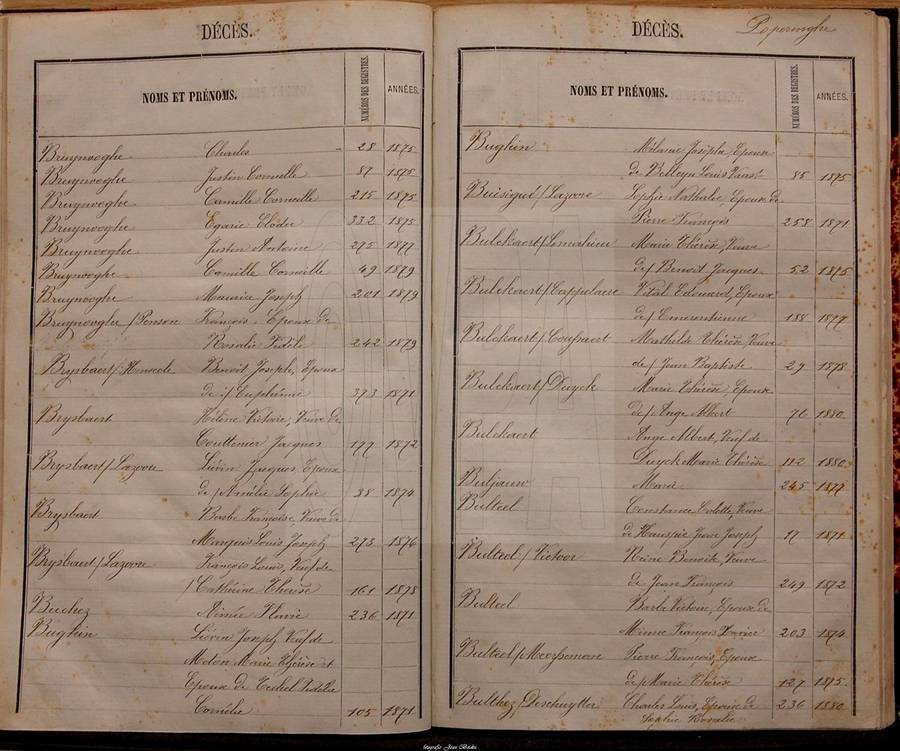 DÉCÈS.
NOMS ET PRÉNOMS.
NUMÉROS DES REGISTRES.
ANNÉES.
Bruynooghe Charles 28 1875
Bruynooghe Justin Corneille 87 1875
Bruynooghe Camille Corneille 215 1875
Bruynooghe Elodie 332 1875
Bruynooghe Justin Antoine 275 1877
Bruynooghe Camille Corneille 49 1879
Bruynooghe Maurice Joseph 201 1879
Bruynooghe / François, Epoux de
Rosalie Fidèle 242 1879
Brysbaert / Benoit Joseph, Epoux
de / Euphémie 373 1871
Brysbaert Hélène Victoire, Veuve de
Couttenier Jacques 177 1872
Brysbaert / Lazoore Liévin Jacques Epoux
de / Amélie Sophie 38 1874
Brysbaert Barbe Françoise Veuve de
Marquis Louis Joseph 273 1876
Brysbaert / Lazoore François Louis, Veuf de
/ Cathérine Thérèse 161 1878
Bucher Aimée Flavie 236 1871
Bughin Liévin Joseph Veuf de
Marie Thérèse et
Epoux de Fidélie
Cornélie 105 1871
DÉCÈS.
Poperinghe
NOMS ET PRÉNOMS.
NUMÉROS DES REGISTRES.
ANNÉES.
Bughin Mélanie Josepha, Epouse
de Louis 85 1875
/ Lazoore Sophie Nathalie, Epouse de
Pierre François 258 1871
Bulckaert / Lemahieu Marie Thérèse, Veuve
de / Benoit Jacques 52 1875
Bulckaert / Cappelaere Vital Edouard, Epoux
de / Emerentienne 188 1877
Bulckaert / Mathilde Thérèse, Veuve
de / Jean Baptiste 29 1878
Bulckaert / Duyck Marie Thérèse, Epouse
de / Ange Albert 76 1880
Bulckaert Ange Albert, Veuf de
Duyck Marie Thérèse 112 1880
Marie 245 1877
Bulteel Constance Colette, Veuve
de Hauspie Jean Joseph 17 1871
Bulteel / Victoor Reine Benoite, Veuve
de Jean François 249 1872
Bulteel Barbe Victoire, Epouse de
Minne François Xavier 203 1874
Bulteel / Meersseman Pierre François, Epoux
de / Marie Thérèse 127 1875.
/ Deschuytter Charles Louis, Epoux de 236 1880
Sophie Rosalie
fotografie Jean Beele